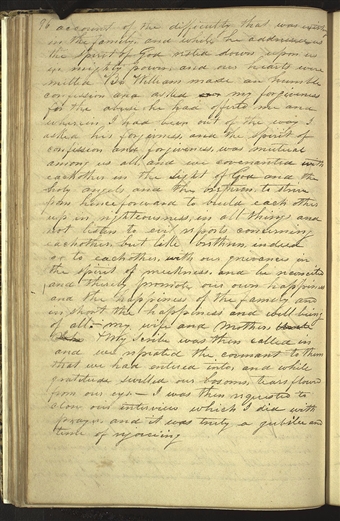 96 account of the difficulty that was
in the family and while he addressed us
the spirit of God rested down upon us
in mighty power, and our hearts were
melted Br. William made an humble
confession and asked my forgiveness
for the abuse he had offered me and
wherein I had been out of the way I
asked his forgivness, and the spirit of
confission and forgiveness, was mutual
among us all, and we covenanted with
eachother in the sight of God and the
holy angels and the brethren, to strive
from henceforward to build each other
up in righteousness, in all things and
not listen to evil reports concerning
eachother, but like brethren, indeed
go to eachother, with our grievances in
the spirit of meekness, and be reconciled
and thereby promote our own happiness
and the happiness of the family and
in short the happiness and well being
of all.— my wife and Mother,
& my scribe was then called in
and we repeated the covenant to them
that we had entered into, and while
gratitude swelled our bosoms, tears flowed
from our eys.— I was then requested to
close our interview which I did with
prayer, and it was truly a jubilee and
time of rejoiceing